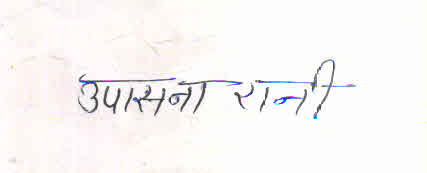 उपासना रानी